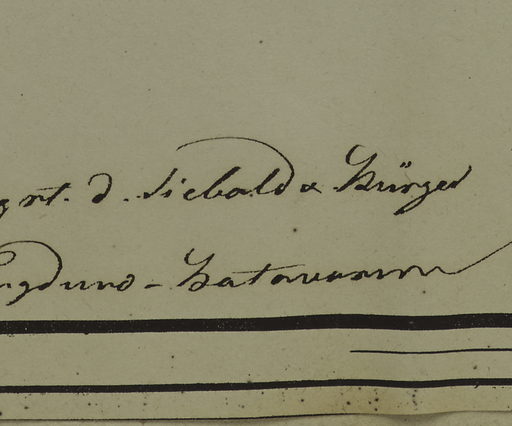 d. Siebold & Bürger
Lugduno-Batavorum